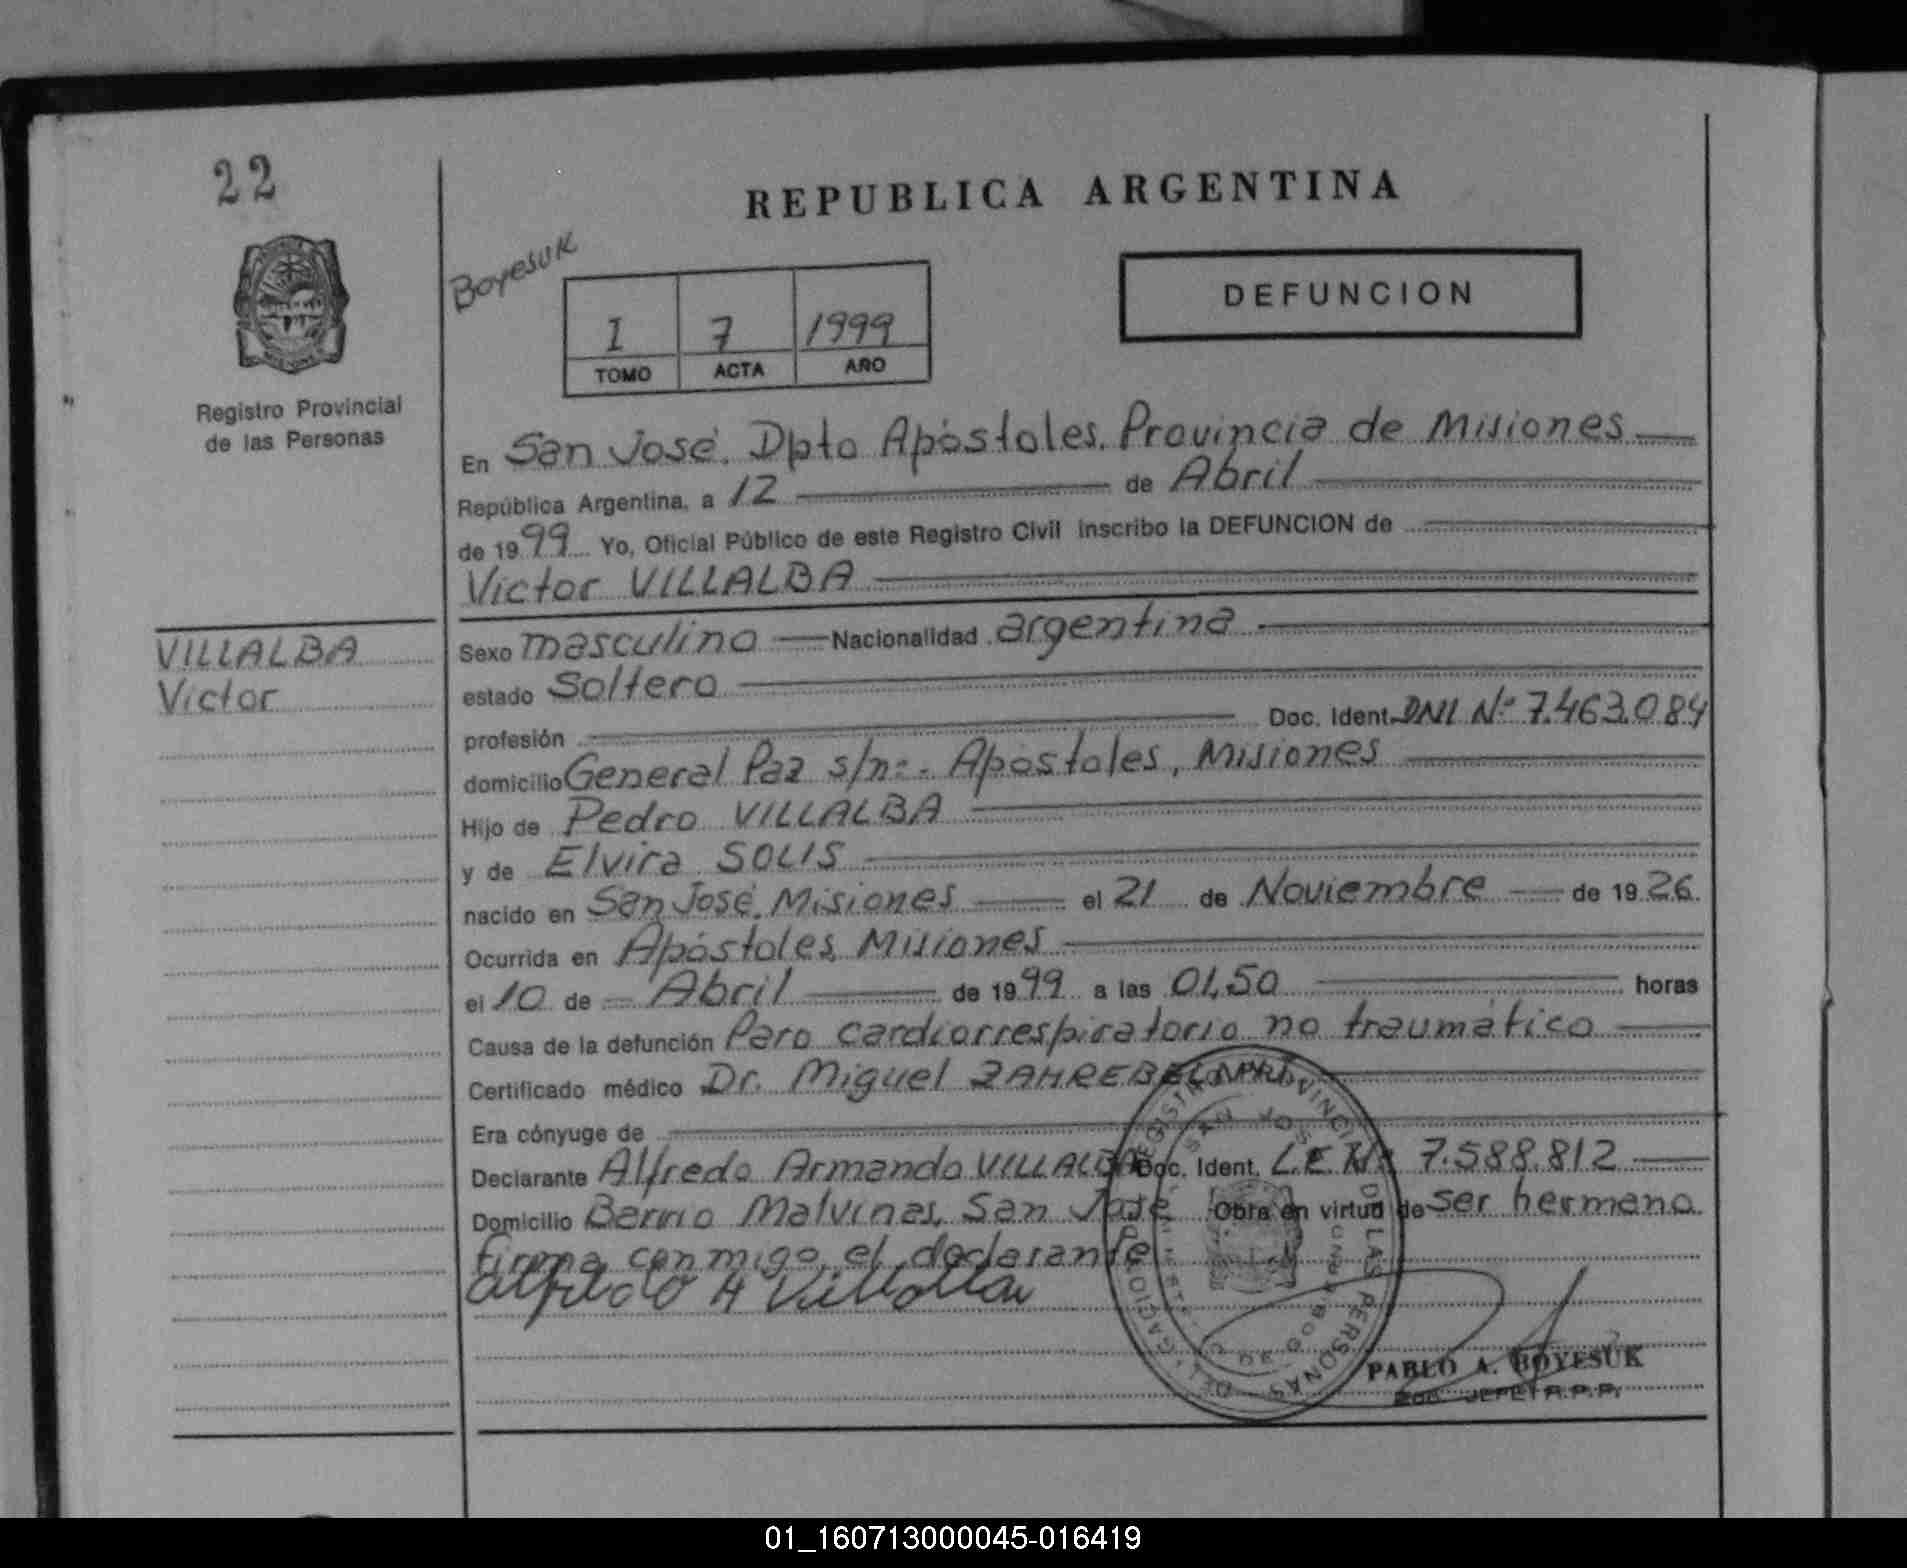 22
REPUBLICA ARGENTINA
Boyesuk
I 7 1999
TOMO ACTA AÑO
DEFUNCION
Registro Provincial
de las Personas
En San José. Dpto Apóstoles. Provincia de Misiones
República Argentina, a 12 de Abril
de 1999 Yo, Oficial Público de este Registro Civil inscribo la DEFUNCION de
Víctor VILLALBA
VILLALBA
Víctor
Sexo masculino Nacionalidad argentina
estado Soltero
profesión Doc. Ident. DNI Nº 7.463.084
domicilio General Paz s/nº. Apóstoles, Misiones
Hijo de Pedro VILLALBA
y de Elvira SOLIS
nacido en San José. Misiones el 21 de Noviembre de 1926.
Ocurrida en Apóstoles Misiones
el 10 de Abril de 1999 a las 01,50 horas
Causa de la defunción Paro cardiorrespiratorio no traumático
Certificado médico Dr. Miguel
Era cónyuge de
Declarante Alfredo Armando VILLALBA Doc. Ident. L.E Nº 7.588.812
Domicilio Barrio Malvinas, San José Obra en virtud de ser hermano.
firma conmigo el declarante
Alfredo A Villalba
REGISTRO PROVINCIAL DE LAS PERSONAS
SAN JOSE
PABLO A. BOYESUK
JEFE R.P.P.
01_160713000045-016419